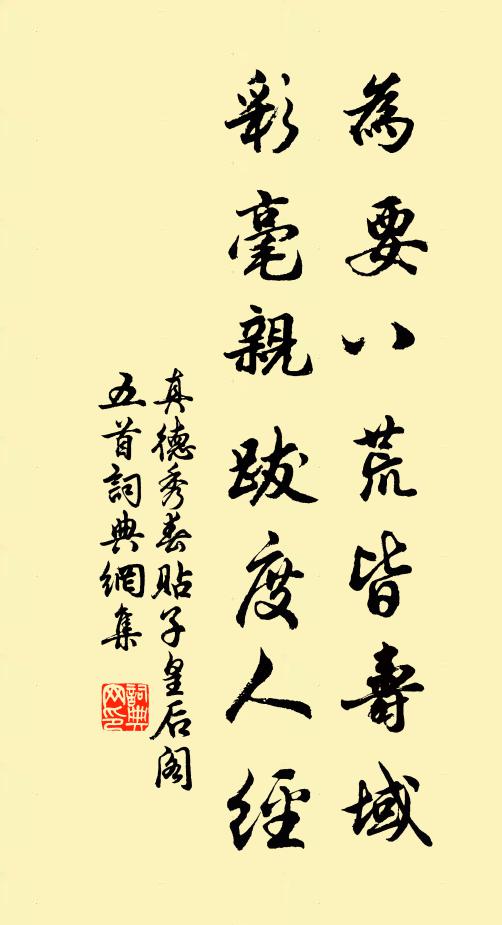 為要八荒皆壽域
彩毫親跋度人經
真德秀春貼子皇后阁
五首詞典網集
詞典
网印